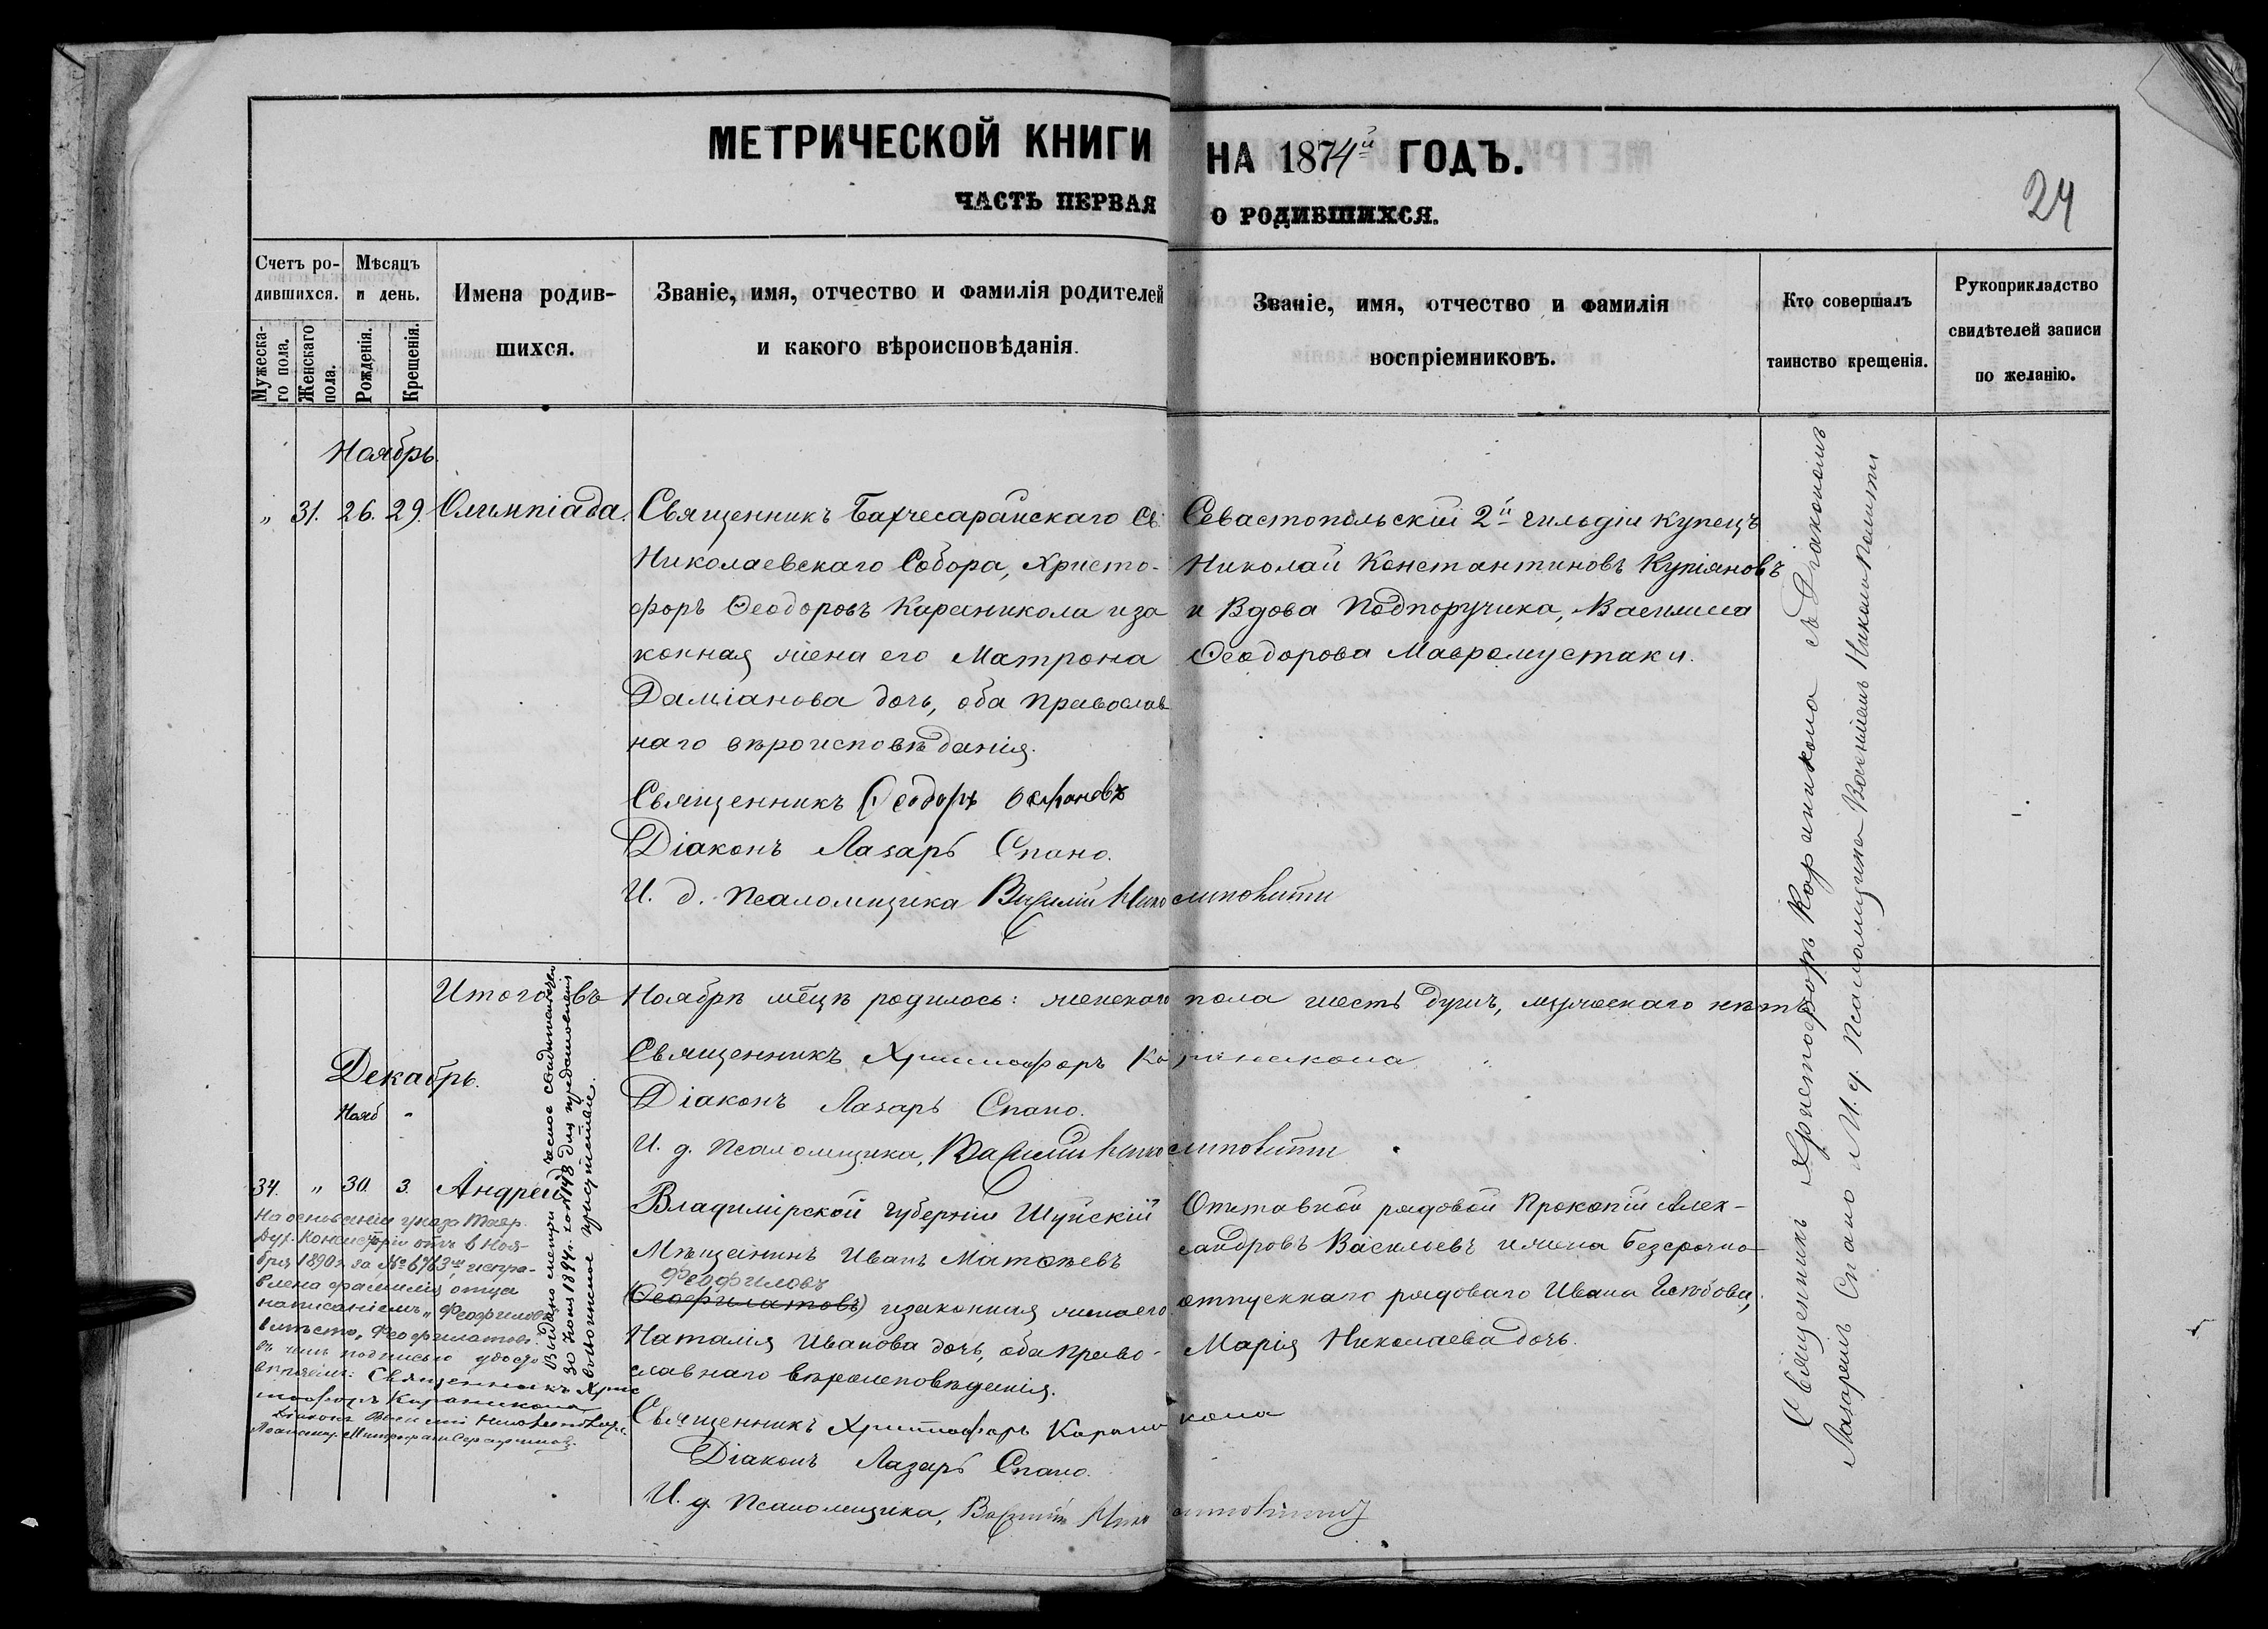 МЕТРИЧЕСКОЙ КНИГИ НА 1874й ГОДЪ.
ЧАСТЬ ПЕРВАЯ О РОДИВШИХСЯ.
24
Счетъ ро-
дившихся.
Мужеска-
го пола.
Женскаго
пола.
Мѣсяцъ
и день.
Рожденія.
Крещенія.
Имена родив-
шихся.
Званіе, имя, отчество и фамилія родителей
и какого вѣроисповѣданія.
Званіе, имя, отчество и фамилія
воспріемниковъ.
Кто совершалъ
таинство крещенія.
Рукоприкладство
свидѣтелей записи
по желанію.
Ноябрь.
„ 31. 26. 29. Олимпіада.
Священникъ Бахчесарайскаго Св.
Николаевскаго Собора, Христо-
форъ Ѳеодоровъ Караникола и за
конная жена его Матрона
Даміанова дочь, оба православ
наго вѣроисповѣданія.
Священникъ Ѳеодоръ
Діаконъ Лазарь Спано.
И. д. Псаломщика Василій
Севастопольскій 2й гильдіи купецъ
Николай Константиновъ Купіяновъ
и Вдова Подпоручика, Василиса
Ѳеодорова Мавромустаки.
Священникъ Христофоръ Караникола съ Діакономъ
Лазаремъ Спано и И. д. Псаломщика Василіемъ
Итого въ Ноябрѣ мѣцѣ родилось: женскаго пола шесть душъ, мужескаго нѣтъ
Священникъ Христофоръ Караникола
Діаконъ Лазарь Спано.
И. д. Псаломщика, Василій
Декабрь.
Нояб "
34. „ 30. 3. Андрей
Владимірской губерніи Шуйскій
Мѣщанинъ Иванъ Матѳѣевъ
Феофиловъ
(Ѳеофилатовъ) и законная жена его
Наталія Иванова дочь, оба право-
славнаго вѣроисповѣданія.
Священникъ Христофоръ Караникола
Діаконъ Лазарь Спано.
И. д. Псаломщика, Василій
Отставной рядовой Прокопій Алек-
сандровъ Васильевъ и жена безсрочно
отпускнаго рядоваго Ивана
Марія Николаева дочь.
На основаніи указа Тавр.
Дух. Консисторіи отъ 6 Ноя-
бря 1890 г. за № 6963 испра-
влена фамилія отца
написаніемъ „Феофиловъ
вмѣсто „Феофилатовъ
въ чемъ подписью удосто-
вѣряемъ: Священникъ Хрис
тофоръ Караникола
Діаконъ Василій
Выдано метрическое свидѣтельство
30 1894 г. за № 148 для предоставленія
въ воинское присутствіе.